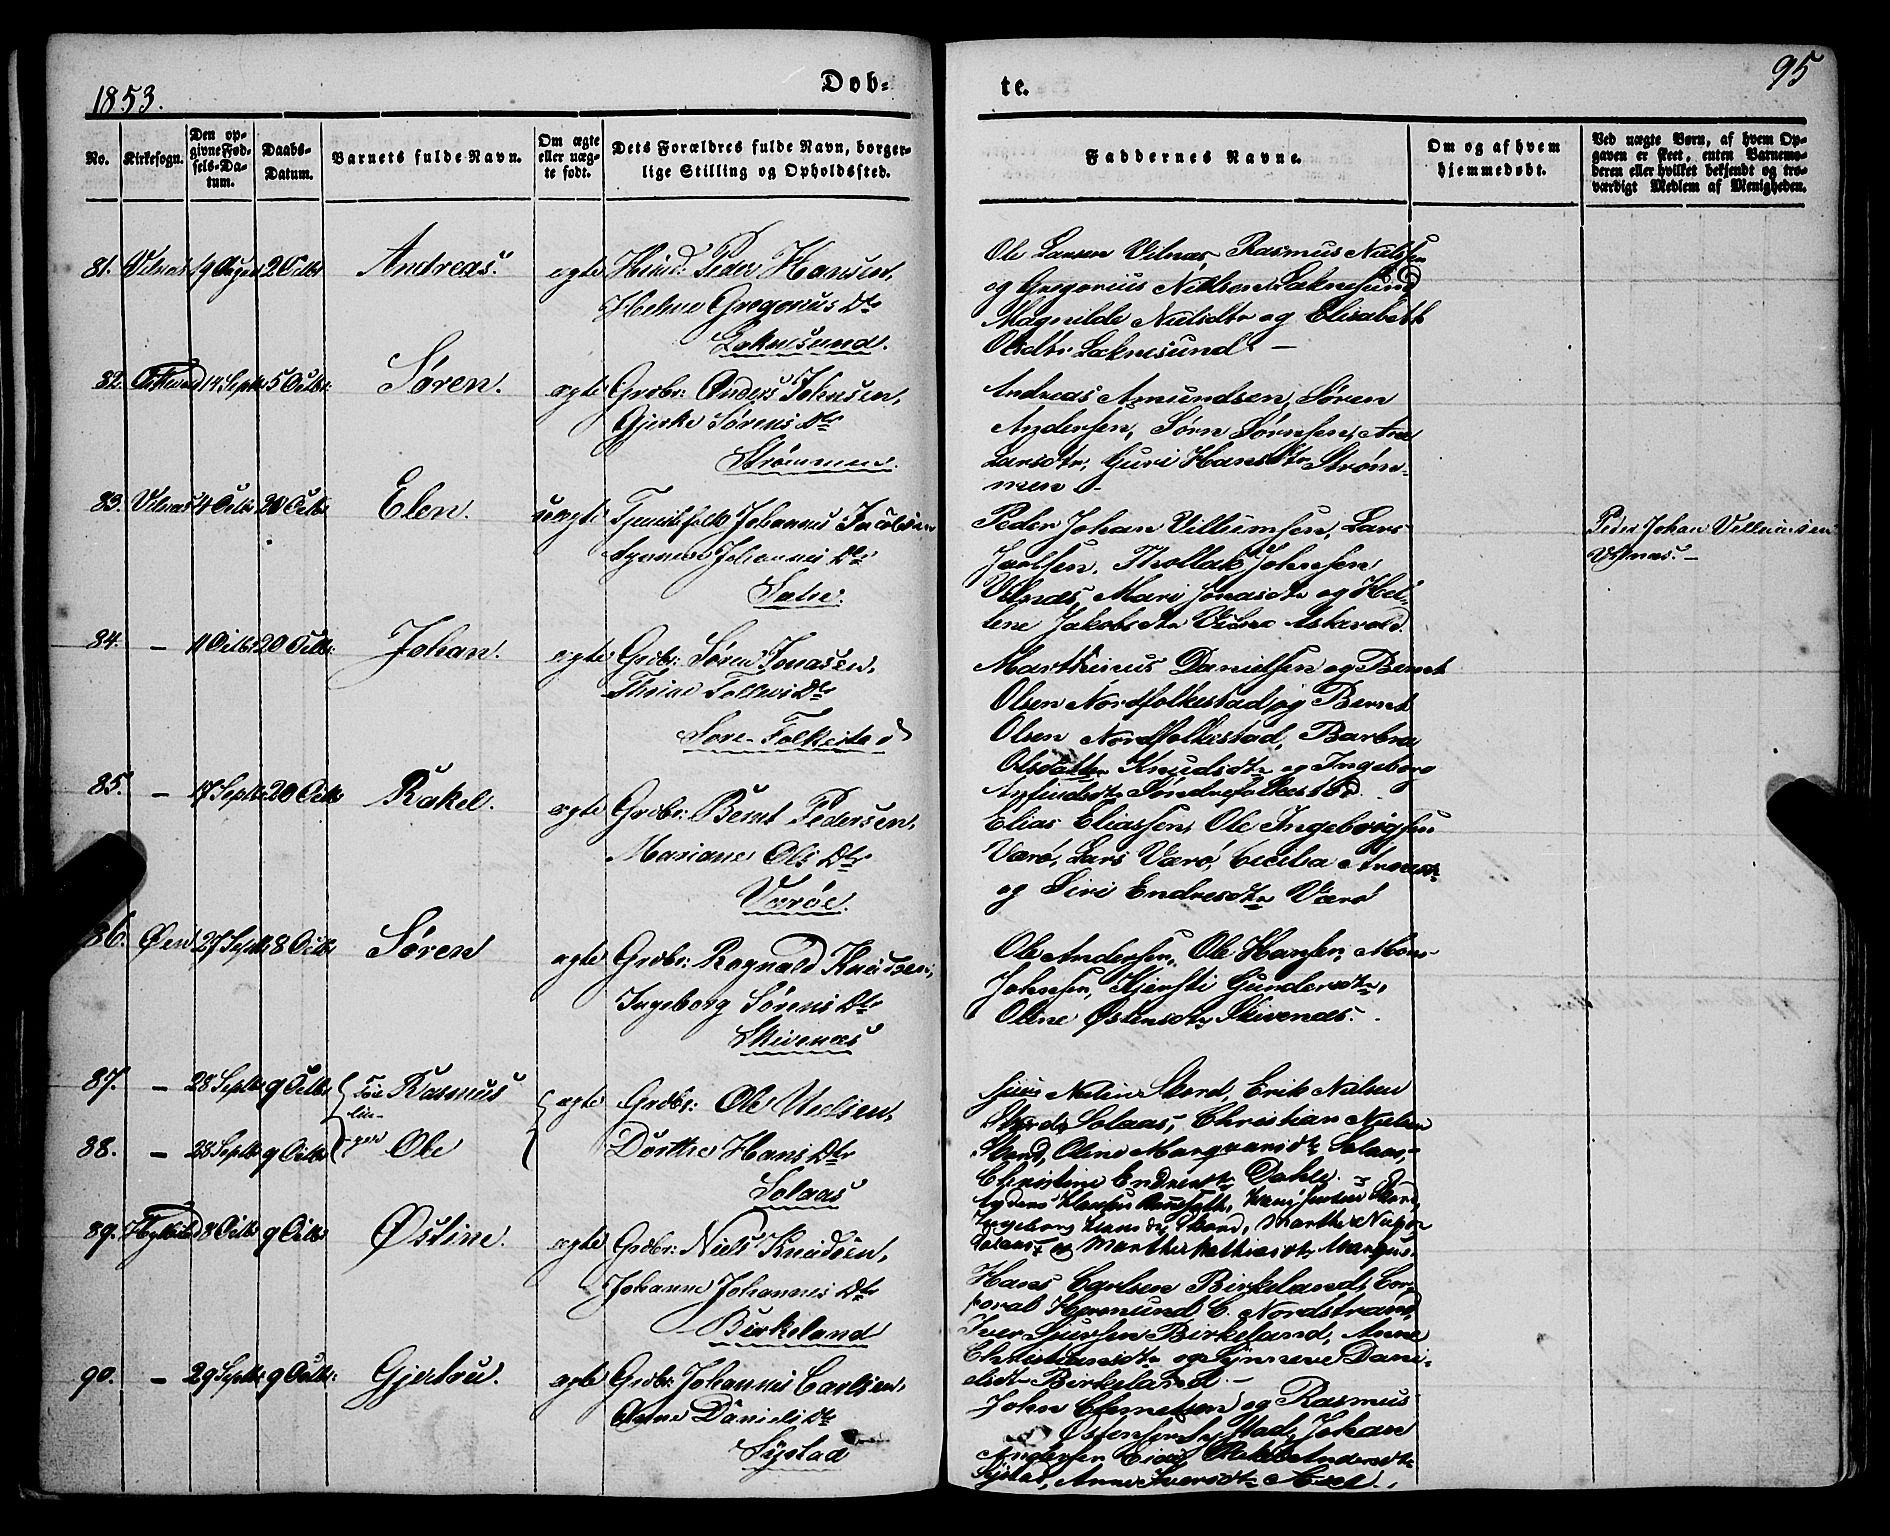 1853.
Dob-
te.
95
No.
Kirkesogn.
Den op-
givne Fød-
sels-Da-
tum.
Daabs-
Datum.
Barnets fulde Navn.
Om ægte
eller uæg-
te født.
Dets Forældres fulde Navn, borger-
lige Stilling og Opholdssted.
Faddernes Navne.
Om og af hvem
hjemmedøbt.
Ved uægte Børn, af hvem Op-
gaven er skeet, enten Barnemo-
deren eller hvilket bekjendt og tro-
værdigt Medlem af Menigheden.
81. Vilnæs 19 August 2 Octbr Andreas. ægte Huusm: Peder Hansen,
Helene Gregorius Dtr
Laknesund.
Ole Larsen Vilnæs, Rasmus Nielsen
og Gregorius Nielsen Laknesund
Magnilde Nielsdtr og Elisabeth
Olsdtr Laknesund. –
82. Askevold 14 Septbr 5 Octbr: Søren. ægte Grdbr: Anders Johnsen,
Gjerke Sørens Dtr
Strømmen.
Andreas Amundsen, Søren
Andersen, Sørn Sørnsen, Ane
Larsdtr, Guri Hansdtr Strøm-
men –
83. Vilnæs 4 Octbr 20 Octbr Elen. uægte Tjenestefolk Johannes Jacobsen
Synneve Johannis Dtr
Sæle.
Peder Johan Villumsen, Lars
Joelsen, Thollak Johnsen
Vilnæs, Mari Jonasdtr og Hel-
lene Jakobsdtr Askevold.
Peder Johan Villumsen
Vilnæs. –
84. – 11 Octbr 20 Octbr: Johan. ægte Grdbr: Søren Jonasen,
Tollevs Dtr
Søre-Folkestad
Marthinus Danielsen og Bernt
Olsen Nordfolkestad og Bernt
Olsen Nordfolkestad, Barbra
Olsdatter Knudsdtr og Ingeborg
Anfindsdtr Søndrefolkestad.
85. – 17 Septbr 20 Octbr Rakel. ægte Grdbr: Bernt Pedersen,
Mariane Ols Dtr
Værøe.
Elias Eliassen, Ole Ingebrigtsen
Værø, Lars Værø, Cecilia
og Siri Endresdtr Værø
86. Øen 27 Septbr 8 Octbr Søren ægte Grdbr: Ragnald Knudsen,
Ingeborg Sørens Dtr
Skivenæs
Ole Andersen, Ole Hansen, Mons
Johnsen, Kjersti Gundersdtr,
Oline Østensdtr Skivenæs.
87. – 28 Septbr 9 Octbr Tvil- Rasmus ægte Grdbr: Ole Nielsen,
lin-
88. – 28 Septbr 9 Octbr ger Ole Dorthe Hans Dtr
Solaas
Nielsen Stord, Erik Nielsen
Solaas, Christian Nielsen
Stord, Oline Solaas,
Christine Endresdtr Dahle. –
Ingeborg Hansdtr Stord, Marthe
Solaas og Marthe Mathiasdtr
89. Hyllestad 8 Octbr 9 Octbr Østine. ægte Grdbr: Niels Knudsen,
Johanne Johannes Dtr
Birkeland
Hans Carlsen Birkeland, Cor-
poral Hermund C. Nordstrand,
Iver Sjursen Birkeland, Anne
Christiansdtr og Synneve Dani-
elsdtr Birkeland. –
90. – 29 Septbr 9 Octbr: Gjertru. ægte Grdbr: Johannes Carlsen,
Anne Daniels Dtr
Systad
John Clemetsen og Rasmus
Østensen Systad, Johan
Andersen Andersdtr
Systad, Anne Iversdtr